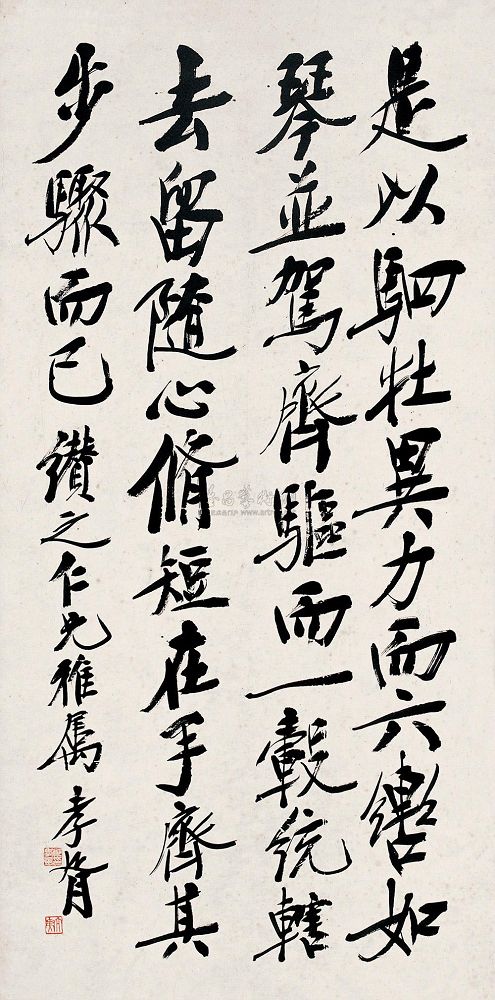 是以駟牡異力而六轡如
琴並駕齊驅而一轂統轄
去留隨心脩短在手齊其
步驟而已 鑽之仁兄雅屬 孝胥